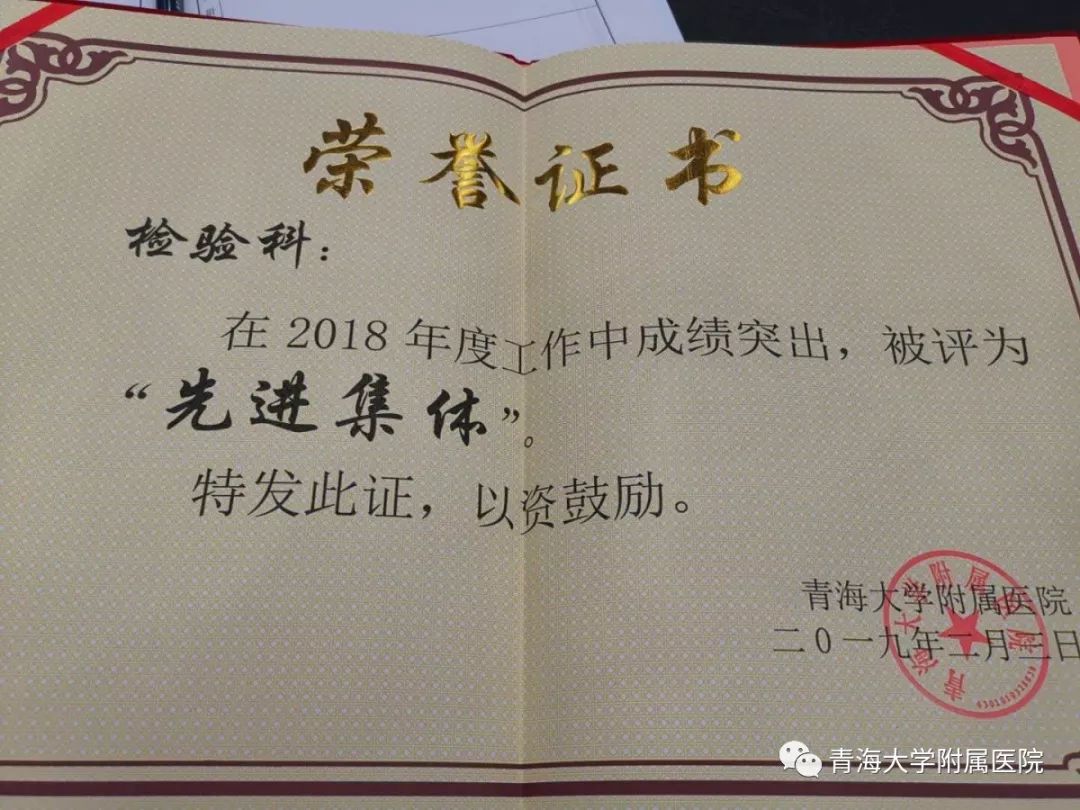 荣誉证书
检验科：
在2018年度工作中成绩突出，被评为
“先进集体”。
特发此证，以资鼓励。
青海大学附属医院
二0一九年二月三日
青海大学附属医院
青海大学附属医院